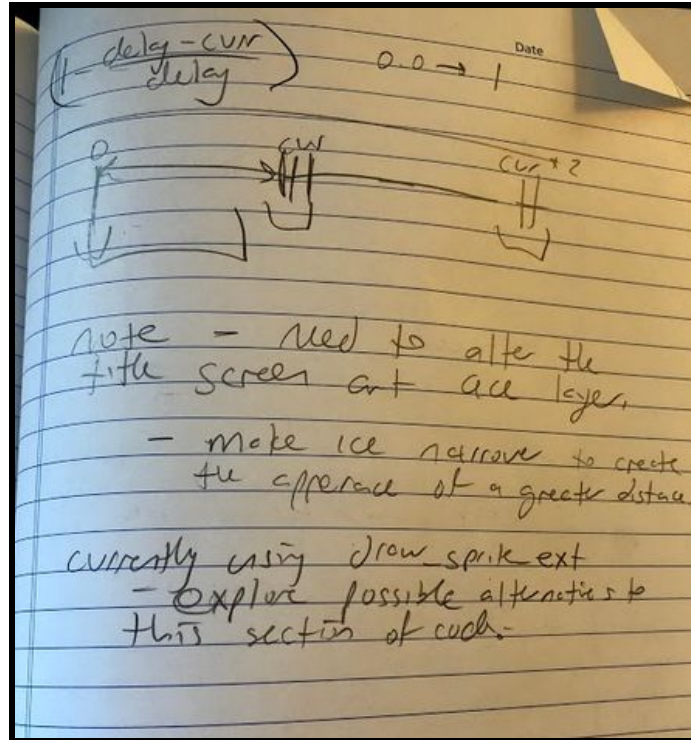 Date
(1 - delay - cur / delay) 0.0 → 1
0 cur cur * 2
note - need to alter the
title screen art ace layer,
- make ice narrove to create
the apperace of a greater distace
currently using draw_sprite_ext
- Explore possible alternatives to
this section of code.